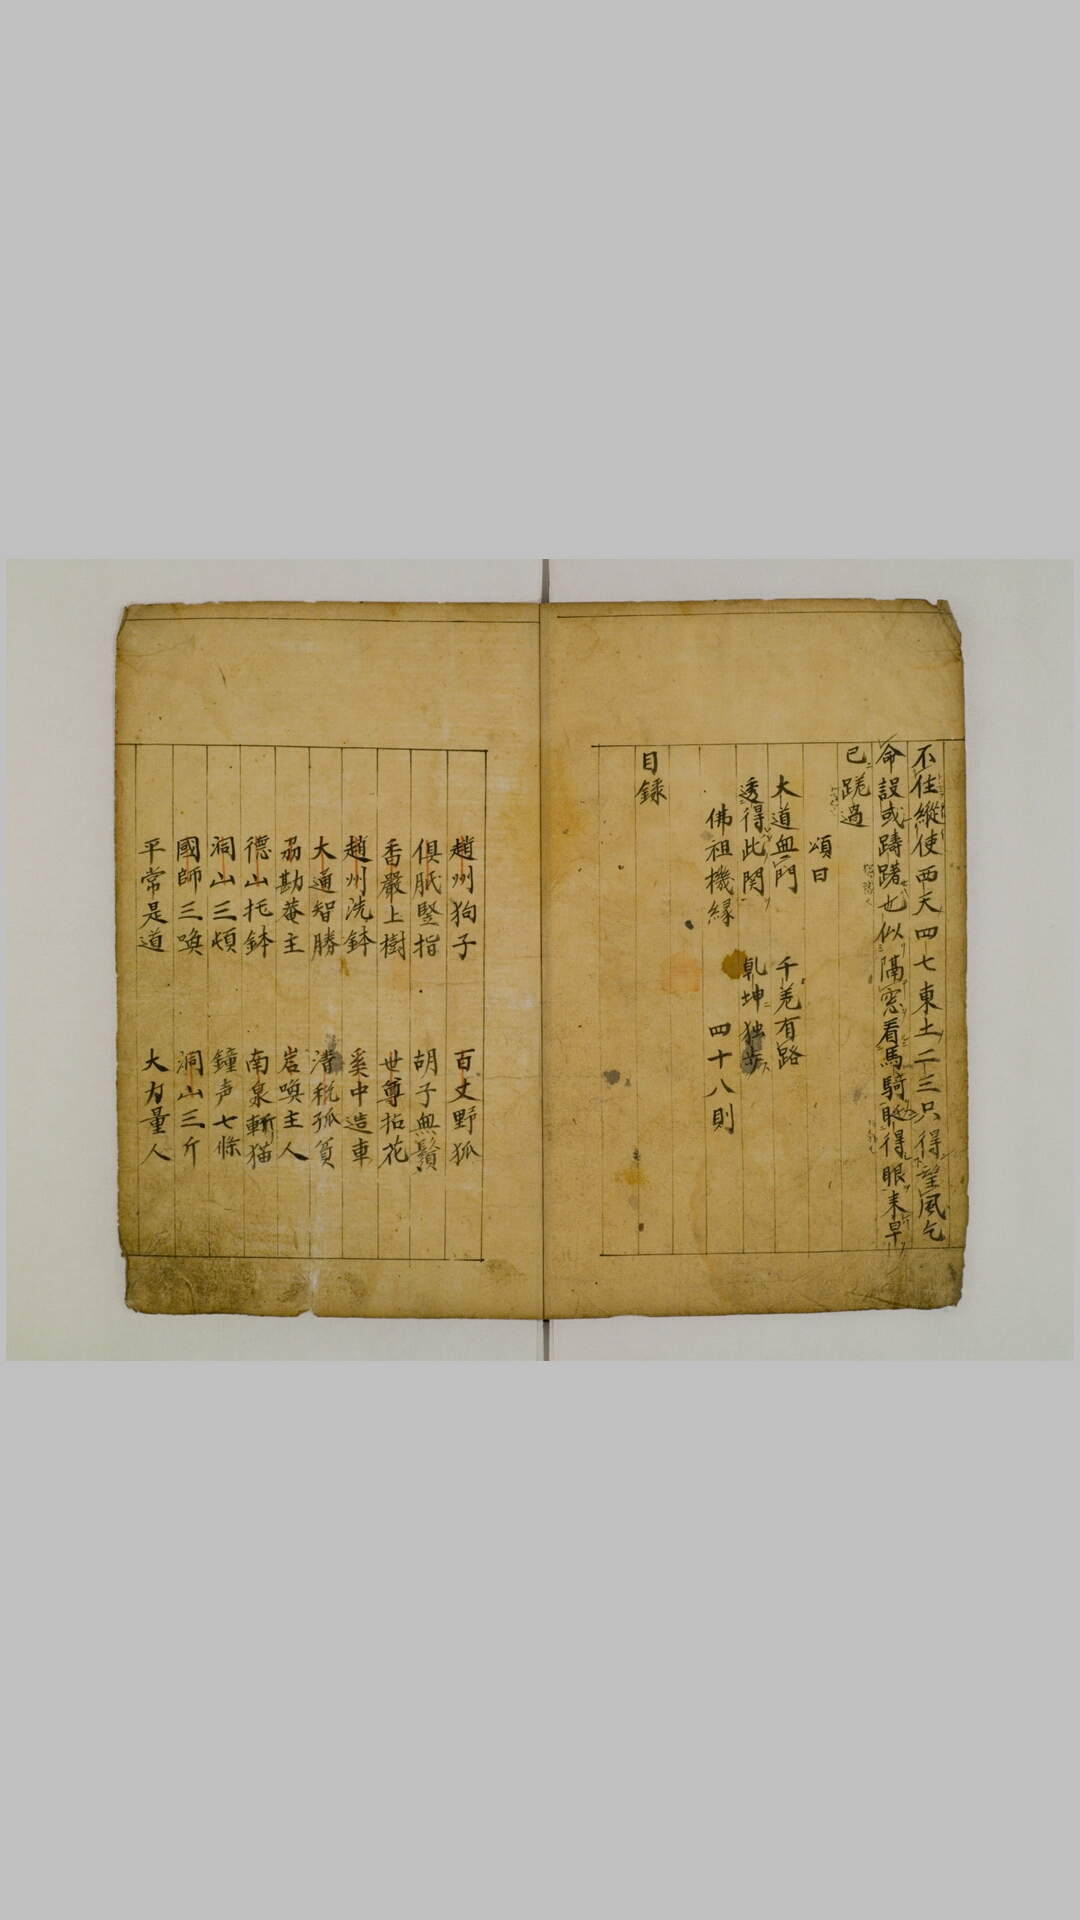 不住縱使西天四七東土二三只得望風乞
命設或躊躇也似隔窓看馬騎眨得眼来早
已蹉過
頌曰
大道無門 千差有路
透得此関 乹坤独歩
佛祖機縁 四十八則
目録
趙州狗子 百丈野狐
倶胝竪指 胡子無鬚
香嚴上樹 世尊拈花
趙州洗鉢 奚中造車
大通智勝 清税孤貧
州勘菴主 岩喚主人
德山托鉢 南泉斬猫
洞山三頓 鐘声七條
國師三喚 洞山三斤
平常是道 大力量人